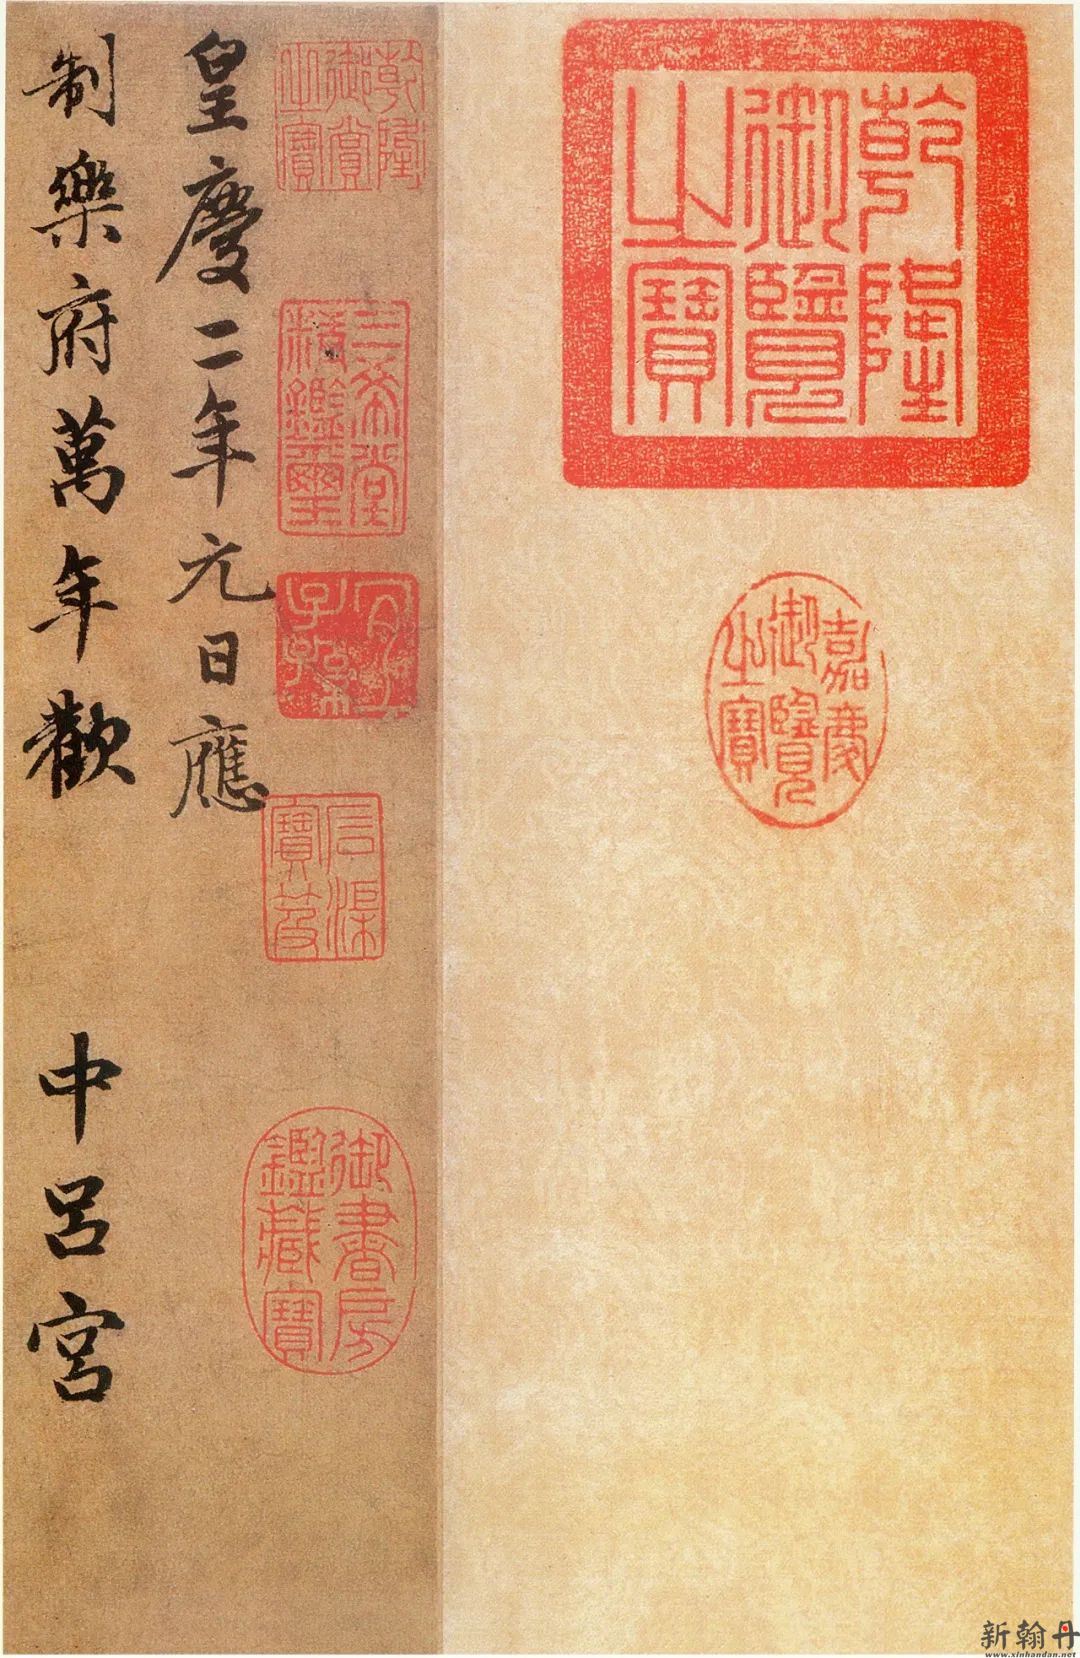 乾隆
御覽
之寶
嘉慶
御覽
之寶
乾隆
御賞
之寶
三希堂
精鑑璽
宜
子孫
石渠
寶笈
御書房
鑑藏寶
皇慶二年元日應
制樂府萬年歡 中呂宮
新翰丹
www.xinhandan.net